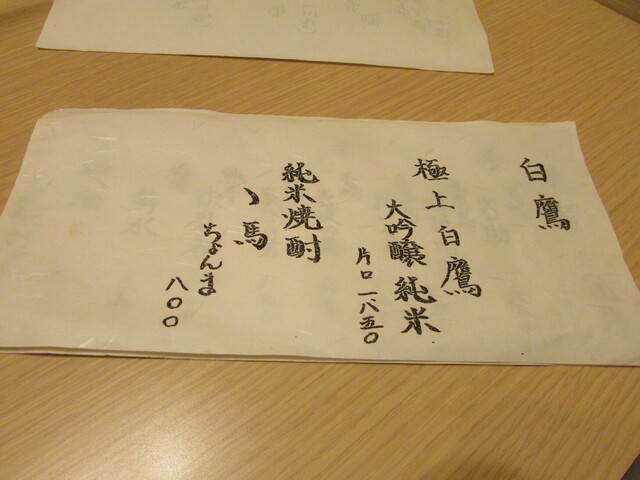 白鷹
極上白鷹
大吟醸純米
片口一八五〇
純米焼酎
ヽ馬
ちょんま
八〇〇